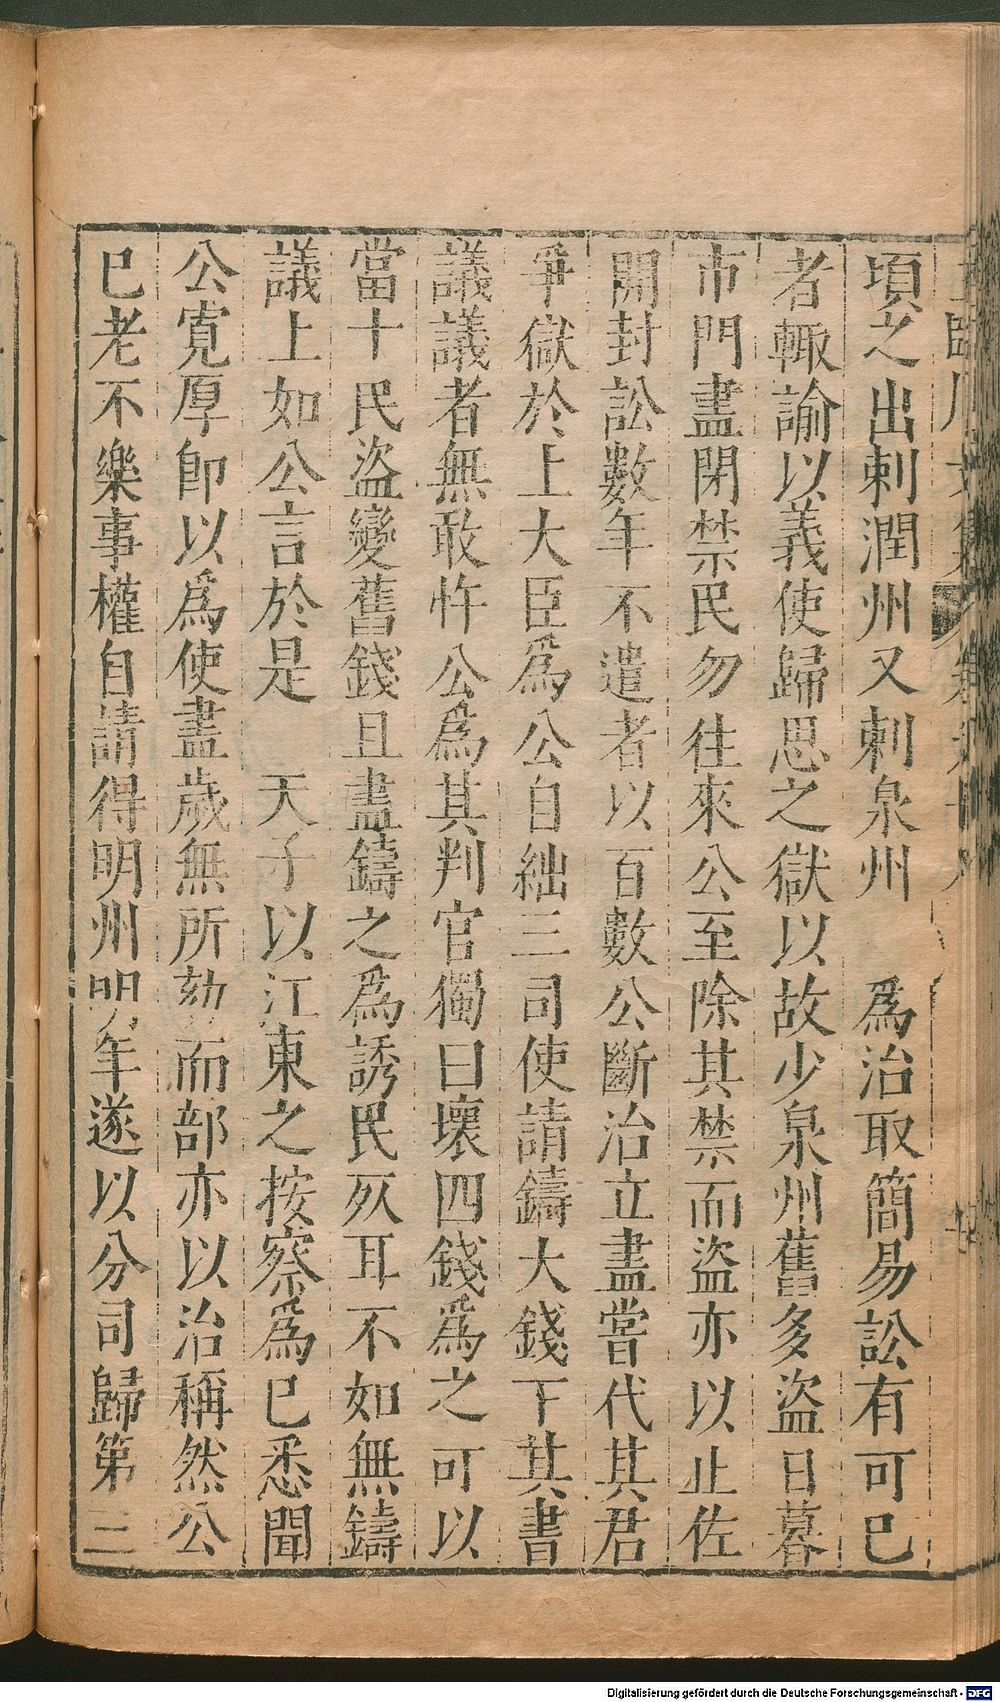 頃之出刺潤州又刺泉州　爲治取簡易訟有可已
者輙諭以義使歸思之獄以故少泉州舊多盜日暮
市門盡閉禁民勿往來公至除其禁而盜亦以止佐
開封訟數年不遣者以百數公斷治立盡嘗代其君
爭獄於上大臣爲公自絀三司使請鑄大錢下其書
議議者無敢忤公爲其判官獨曰壞四錢爲之可以
當十民盜變舊錢且盡鑄之爲誘民死耳不如無鑄
議上如公言於是　天子以江東之按察爲已悉聞
公寬厚卽以爲使盡歲無所劾而部亦以治稱然公
已老不樂事權自請得明州明年遂以分司歸第三
Digitalisierung gefördert durch die Deutsche Forschungsgemeinschaft - DFG